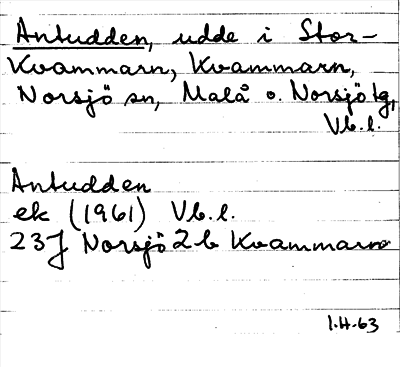 Antudden, udde i Stor-
Kvammarn, Kvammarn,
Norsjö sn, Malå o. Norsjö tg,
Vb.l.
Antudden
ek (1961) Vb.l.
23J Norsjö 2b Kvammarn
1.H.63